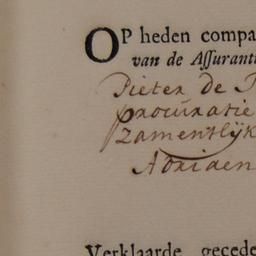 OP heden compa
van de Aſſuranti
Pieter de P
procuratie
zamentlijk
Adriaen
Verklaarde gecede